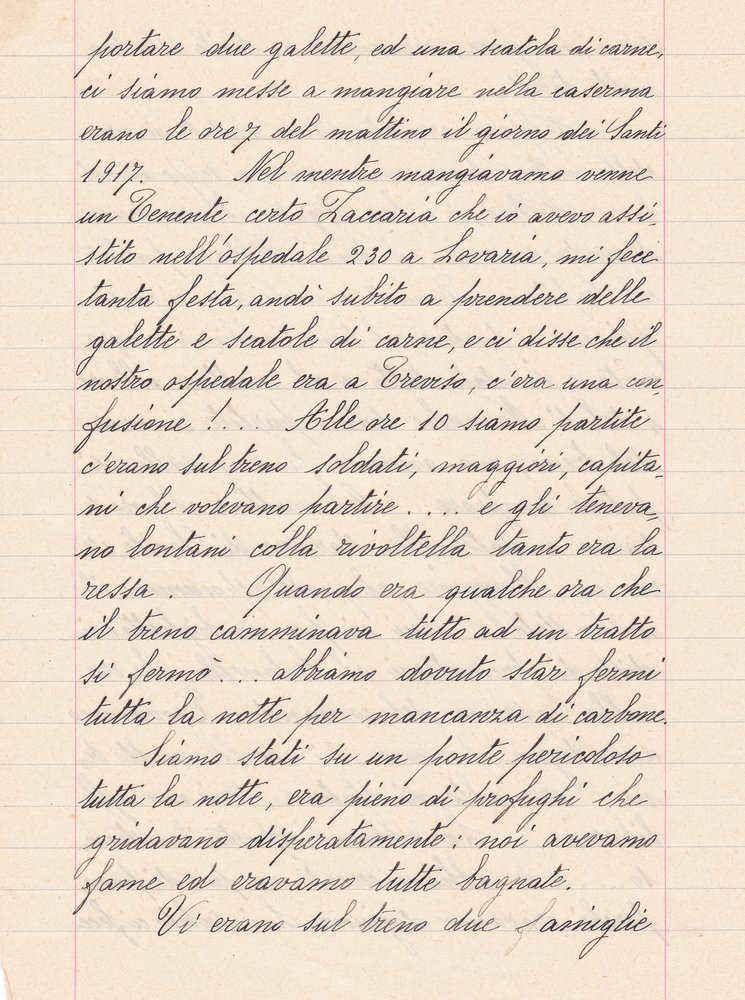 portare due galette, ed una scatola di carne,
ci siamo messe a mangiare nella caserma
erano le ore 7 del mattino il giorno dei Santi
1917. Nel mentre mangiavamo venne
un Tenente certo Zaccaria che io avevo assi,
stito nell'ospedale 230 a Lovaria, mi fece
tanta festa, andò subito a prendere delle
galette e scatole di carne, e ci disse che il
nostro ospedale era a Treviso, c'era una con,
fusione !... Alle ore 10 siamo partite
c'erano sul treno soldati, maggiori, capita,
ni che volevano partire .... e gli teneva,
no lontani colla rivoltella tanto era la
ressa. Quando era qualche ora che
il treno camminava tutto ad un tratto
si fermò... abbiamo dovuto star fermi
tutta la notte per mancanza di carbone.
Siamo stati su un ponte pericoloso
tutta la notte, era pieno di profughi che
gridavano disperatamente: noi avevamo
fame ed eravamo tutte bagnate.
Vi erano sul treno due famiglie